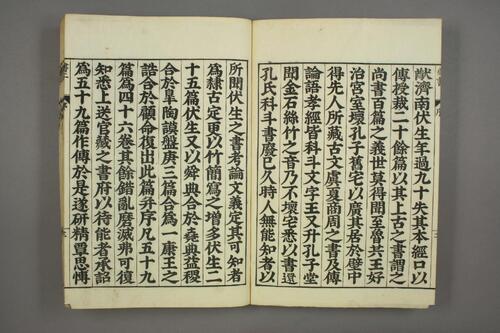 猷濟南伏生年過九十失其本經口以
傳授裁二十餘篇以其上古之書謂之
尚書百篇之義世莫得聞至魯共王好
治宮室壞孔子舊宅以廣其居於壁中
得先人所藏古文虞夏商周之書及傳
論語孝經皆科斗文字王又升孔子堂
聞金石絲竹之音乃不壞宅悉以書還
孔氏科斗書廢已久時人無能知者以
所聞伏生之書考論文義定其可知者
為隸古定更以竹簡寫之增多伏生二
十五篇伏生又以舜典合於堯典益稷
合於皐陶謨盤庚三篇合為一康王之
誥合於顧命復出此篇并序凡五十九
篇為四十六卷其餘錯亂磨滅弗可復
知悉上送官藏之書府以待能者承詔
為五十九篇作傳於是遂研精覃思愽